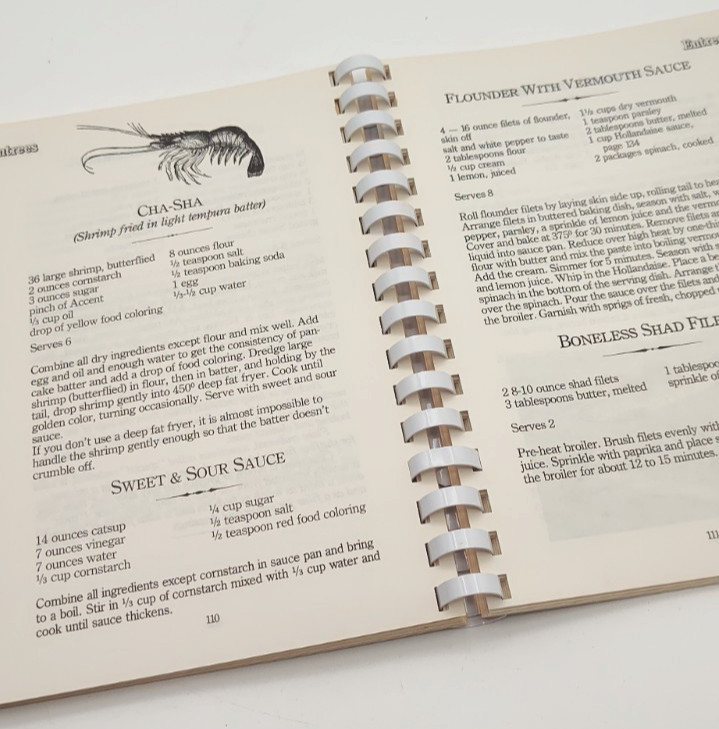 CHA-SHA
(Shrimp fried in light tempura batter)
36 large shrimp, butterflied
2 ounces cornstarch
3 ounces sugar
pinch of Accent
⅓ cup oil
drop of yellow food coloring
8 ounces flour
½ teaspoon salt
½ teaspoon baking soda
1 egg
⅓-½ cup water
Serves 6
Combine all dry ingredients except flour and mix well. Add
egg and oil and enough water to get the consistency of pan-
cake batter and add a drop of food coloring. Dredge large
shrimp (butterflied) in flour, then in batter, and holding by the
tail, drop shrimp gently into 450° deep fat fryer. Cook until
golden color, turning occasionally. Serve with sweet and sour
sauce.
If you don't use a deep fat fryer, it is almost impossible to
handle the shrimp gently enough so that the batter doesn't
crumble off.
SWEET & SOUR SAUCE
14 ounces catsup
7 ounces vinegar
7 ounces water
⅓ cup cornstarch
¼ cup sugar
½ teaspoon salt
½ teaspoon red food coloring
Combine all ingredients except cornstarch in sauce pan and bring
to a boil. Stir in ⅓ cup of cornstarch mixed with ⅓ cup water and
cook until sauce thickens.
110
FLOUNDER WITH VERMOUTH SAUCE
4 — 16 ounce filets of flounder,
skin off
salt and white pepper to taste
2 tablespoons flour
cup cream
1 lemon, juiced
cups dry vermouth
1 teaspoon parsley
2 tablespoons butter, melted
1 cup Hollandaise sauce,
page 134
2 packages spinach, cooked
Serves 8
Roll flounder filets by laying skin side up, rolling tail to
Arrange filets in buttered baking dish, season with salt,
pepper, parsley, a sprinkle of lemon juice and the
Cover and bake at 375° for 30 minutes. Remove filets
liquid into sauce pan. Reduce over high heat by
flour with butter and mix the paste into boiling
Add the cream. Simmer for 5 minutes. Season with
and lemon juice. Whip in the Hollandaise. Place a
spinach in the bottom of the serving dish. Arrange
over the spinach. Pour the sauce over the filets and
the broiler. Garnish with sprigs of fresh, chopped
BONELESS SHAD
2 8-10 ounce shad filets
3 tablespoons butter, melted
1
sprinkle
Serves 2
Pre-heat broiler. Brush filets evenly
juice. Sprinkle with paprika and place
the broiler for about 12 to 15 minutes.